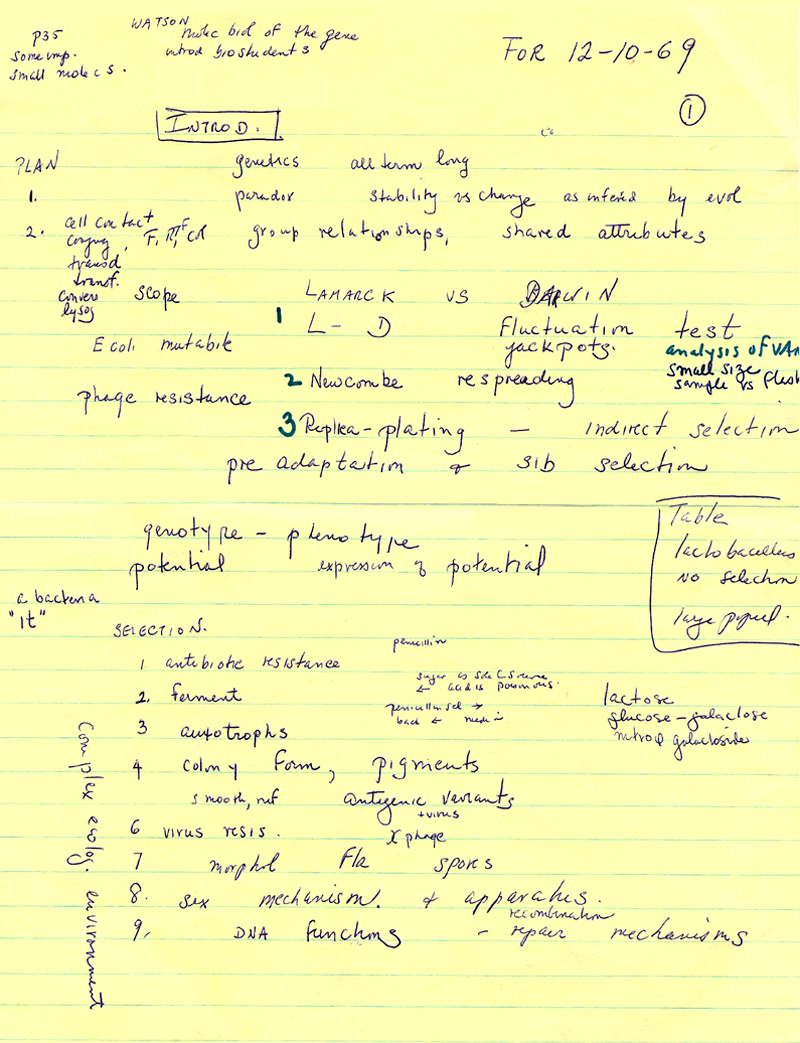 p35
some imp.
small molecs.
WATSON
molec biol of the gene
introd biostudents
FOR 12-10-69
1
INTROD.
PLAN
genetics all term long
1. paradox stability vs change as infered by evol
2. cell contact
conjug, F, RTF Col
transd
transf.
convers
lysog
group relationships, shared attributes
scope
LAMARCK VS DARWIN
1 L - D Fluctuation test
jackpots.
analysis of VAR
small size
sample vs flask
E coli mutabile
phage resistance
2 Newcombe respreading
3 Replica-plating — indirect selection
pre adaptation & sib selection
genotype - phenotype
potential expression of potential
Table
lactobacillus
no selection
large popul.
a bacteria
"it"
SELECTION.
penicillin
1 antibiotic resistance
2. ferment
sugar is sole C source
← acid is poisonous.
lactose
glucose-galactose
nitrop galactoside
3 auxotrophs
penicillin sel →
back ← med
4 colony form, pigments
smooth, ruf antigenic variants
+ virus
6 virus resis. X phage
7 morphol Fla spores
8. sex mechanism. & apparatus.
9. DNA functions - repair mechanisms
recombination
Complex ecolog. environment